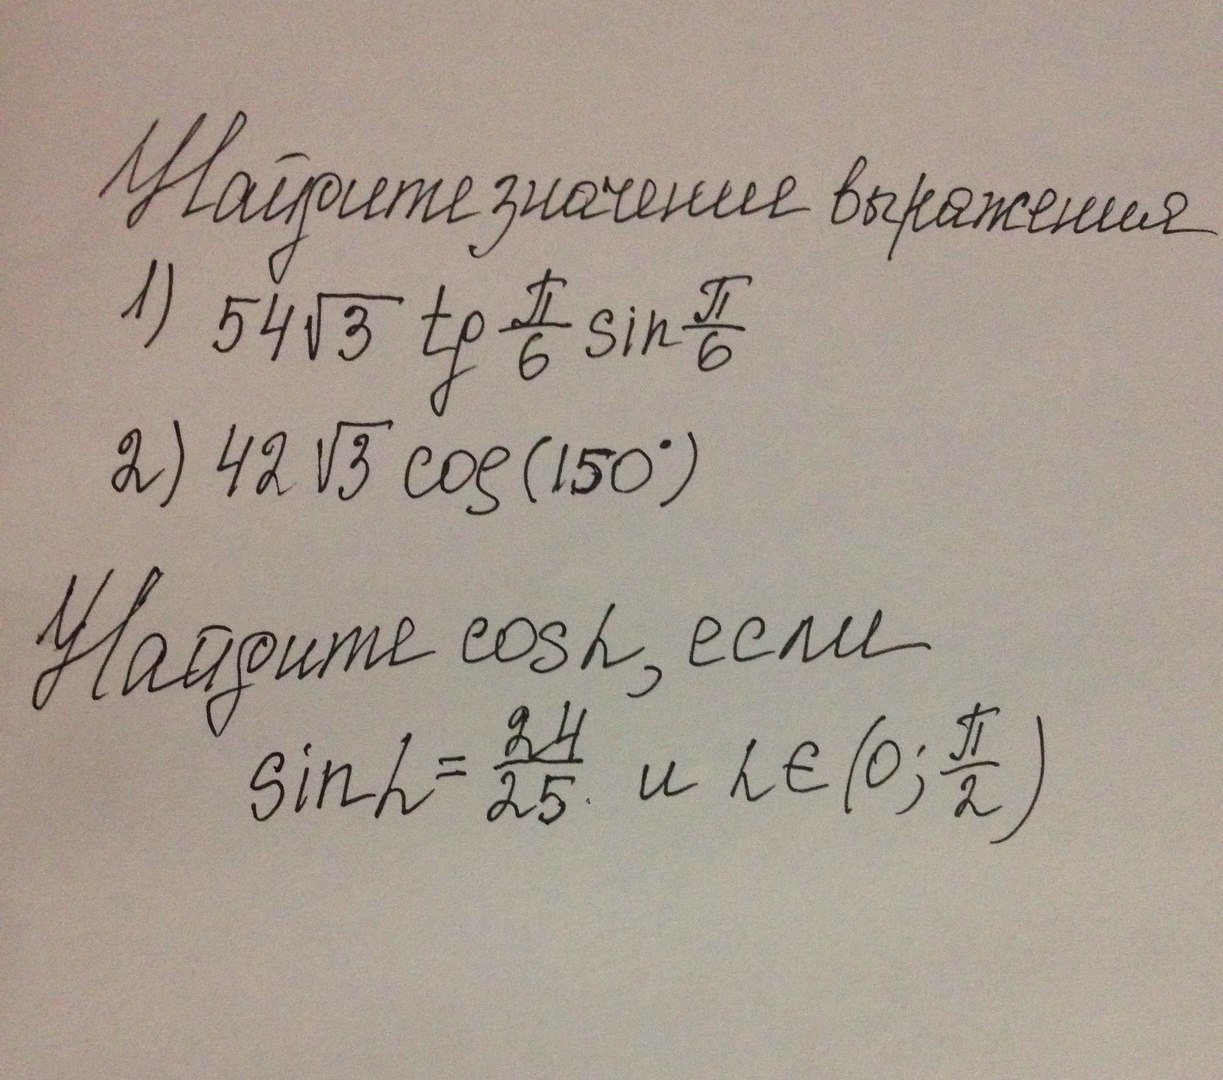 Найдите значение выражения
1) 54√3 tg π/6 sin π/6
2) 42√3 cos(150°)
Найдите cos α, если
sin α = 24/25. и α ∈ (0; π/2)